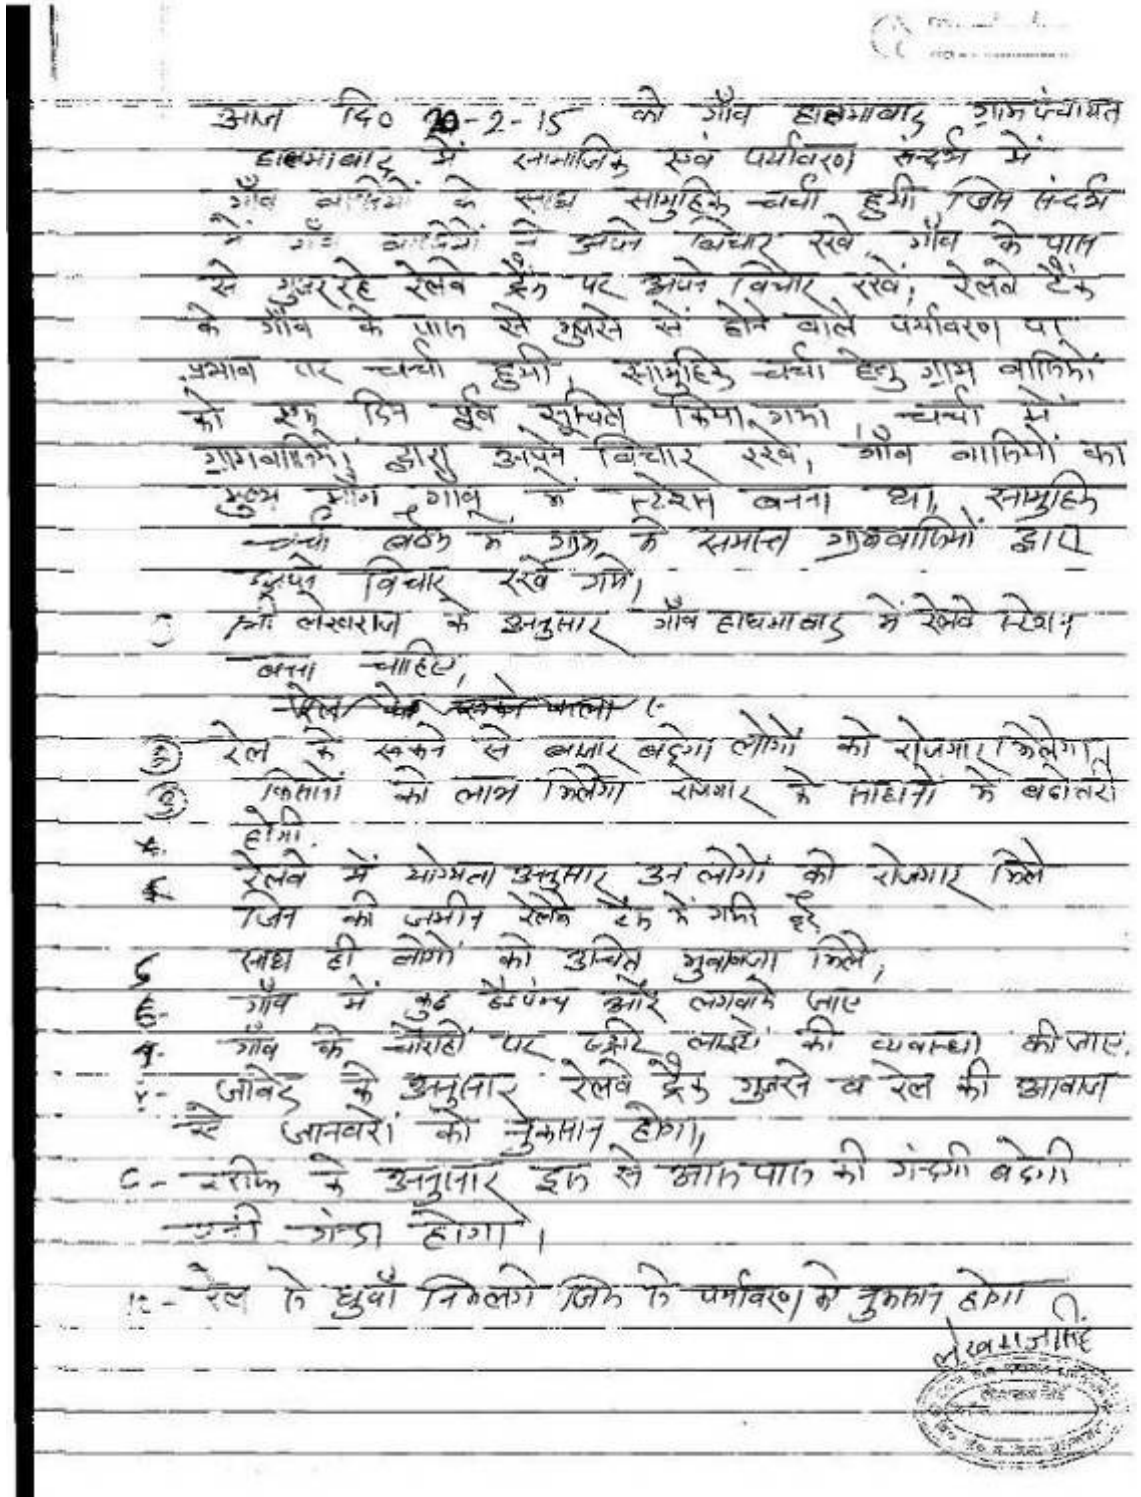 आज दि० 20-2-15 को गाँव हाथमाबाद ग्रामपंचायत
हाथमाबाद में सामाजिक एवं पर्यावरण संन्दर्भ में
गाँव वासियों के साथ सामुहिक चर्चा हुयी जिस संन्दर्भ
में गाँव वासियों ने अपने विचार रखे, गाँव के पास
से गुजर रहे रेलवे ट्रैक पर अपने विचार रखे, रेलवे ट्रैक
के गाँव के पास से गुजरने से होने वाले पर्यावरण पर
प्रभाव पर चर्चा हुयी, सामुहिक चर्चा हेतु ग्राम वासियों
को एक दिन पूर्व सूचित किया गया, चर्चा में
ग्रामवासियों द्वारा अपने विचार रखे, गाँव वासियों का
मुख्य माँग गाव में स्टेशन बनना था, सामुहिक
चर्चा बैठक में ग्राम के समास्त ग्रामवासियों द्वारा
अपने विचार रखे गये,
श्री लेखराज के अनुसार गाँव हाथमाबाद में रेलवे स्टेशन
बनना चाहिए,
② रेल के रूकने से बाजार बढ़ेगा लोगों को रोजगार मिलेगा,
③ किसानों को लाभ मिलेगा रोजगार के साधनों में बढोत्तरी
होगी.
रेलवे में योग्यता अनुसार उन लोगों को रोजगार मिले
जिन की जमीन रेलवे ट्रैक में गयी है
5 साथ ही लोगों को उचित मुवावजा मिले,
6- गाँव में कुछ हैडपम्प और लगवाये जाए
गाँव के चौराहों पर लाइटों की व्यवास्था की जाए,
जावेद के अनुसार रेलवे ट्रैक गुजरने व रेल की आवाज
से जानवरों को नुकसान होगा,
के अनुसार इस से आस पास की गंदगी बढेगी
पानी गन्दा होगा।
10- रेल से धुवाँ निकलेगा जिस से पर्यावरण को नुकसान होगा
लेखराजसिंह